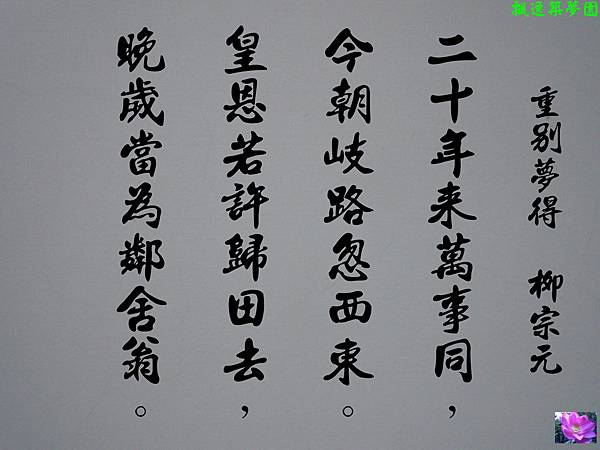 飄逸築夢園
重別夢得 柳宗元
二十年来萬事同,
今朝岐路忽西東。
皇恩若許歸田去,
晚歲當為鄰舍翁。